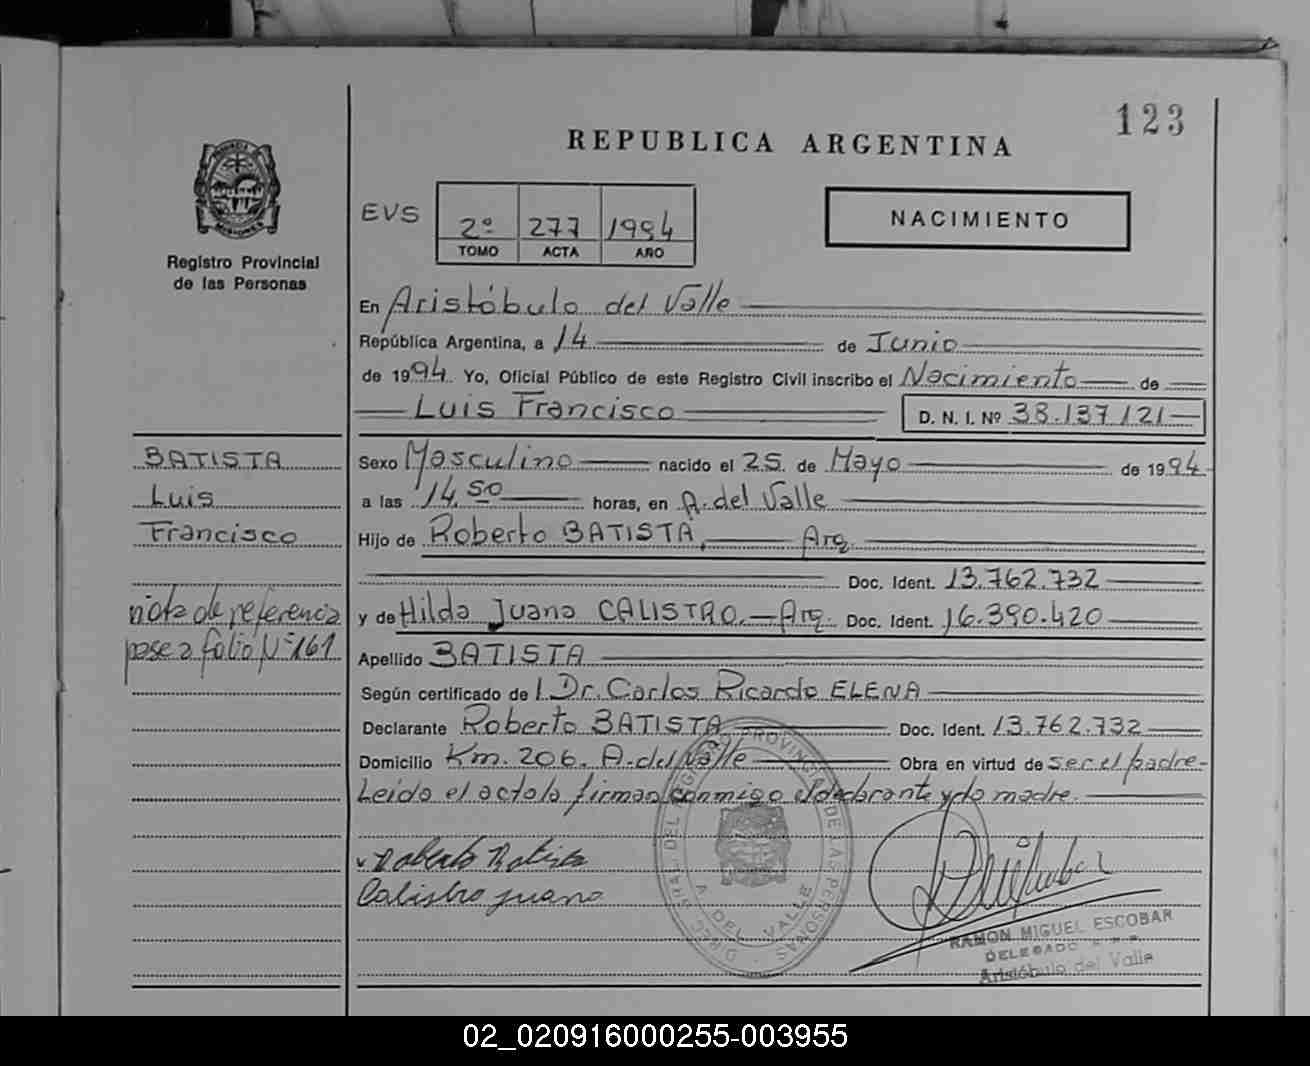 123
REPUBLICA ARGENTINA
PROVINCIA DE
MISIONES
Registro Provincial
de las Personas
EVS
2º 277 1994
TOMO ACTA AÑO
NACIMIENTO
En Aristóbulo del Valle
República Argentina, a 14 de Junio
de 1994 Yo, Oficial Público de este Registro Civil inscribo el Nacimiento de
Luis Francisco D. N. I. Nº 38.137.121
BATISTA
Luis
Francisco
nota de referencia
pase a folio Nº 161
Sexo Masculino nacido el 25 de Mayo de 1994
a las 14,50 horas, en A. del Valle
Hijo de Roberto BATISTA, Arg.
Doc. Ident. 13.762.732
y de Hilda Juana CALISTRO.- Arg. Doc. Ident. 16.390.420
Apellido BATISTA
Según certificado de Dr. Carlos Ricardo ELENA
Declarante Roberto BATISTA Doc. Ident. 13.762.732
Domicilio Km. 206. A. del Valle Obra en virtud de ser el padre-
Leida el acta la firman conmigo el declarante y la madre.
Roberto Batista
Calistro juana
PROVINCIAL DE LAS PERSONAS
A. DEL VALLE
RAMON MIGUEL ESCOBAR
DELEGADO
Aristóbulo del Valle
02_020916000255-003955